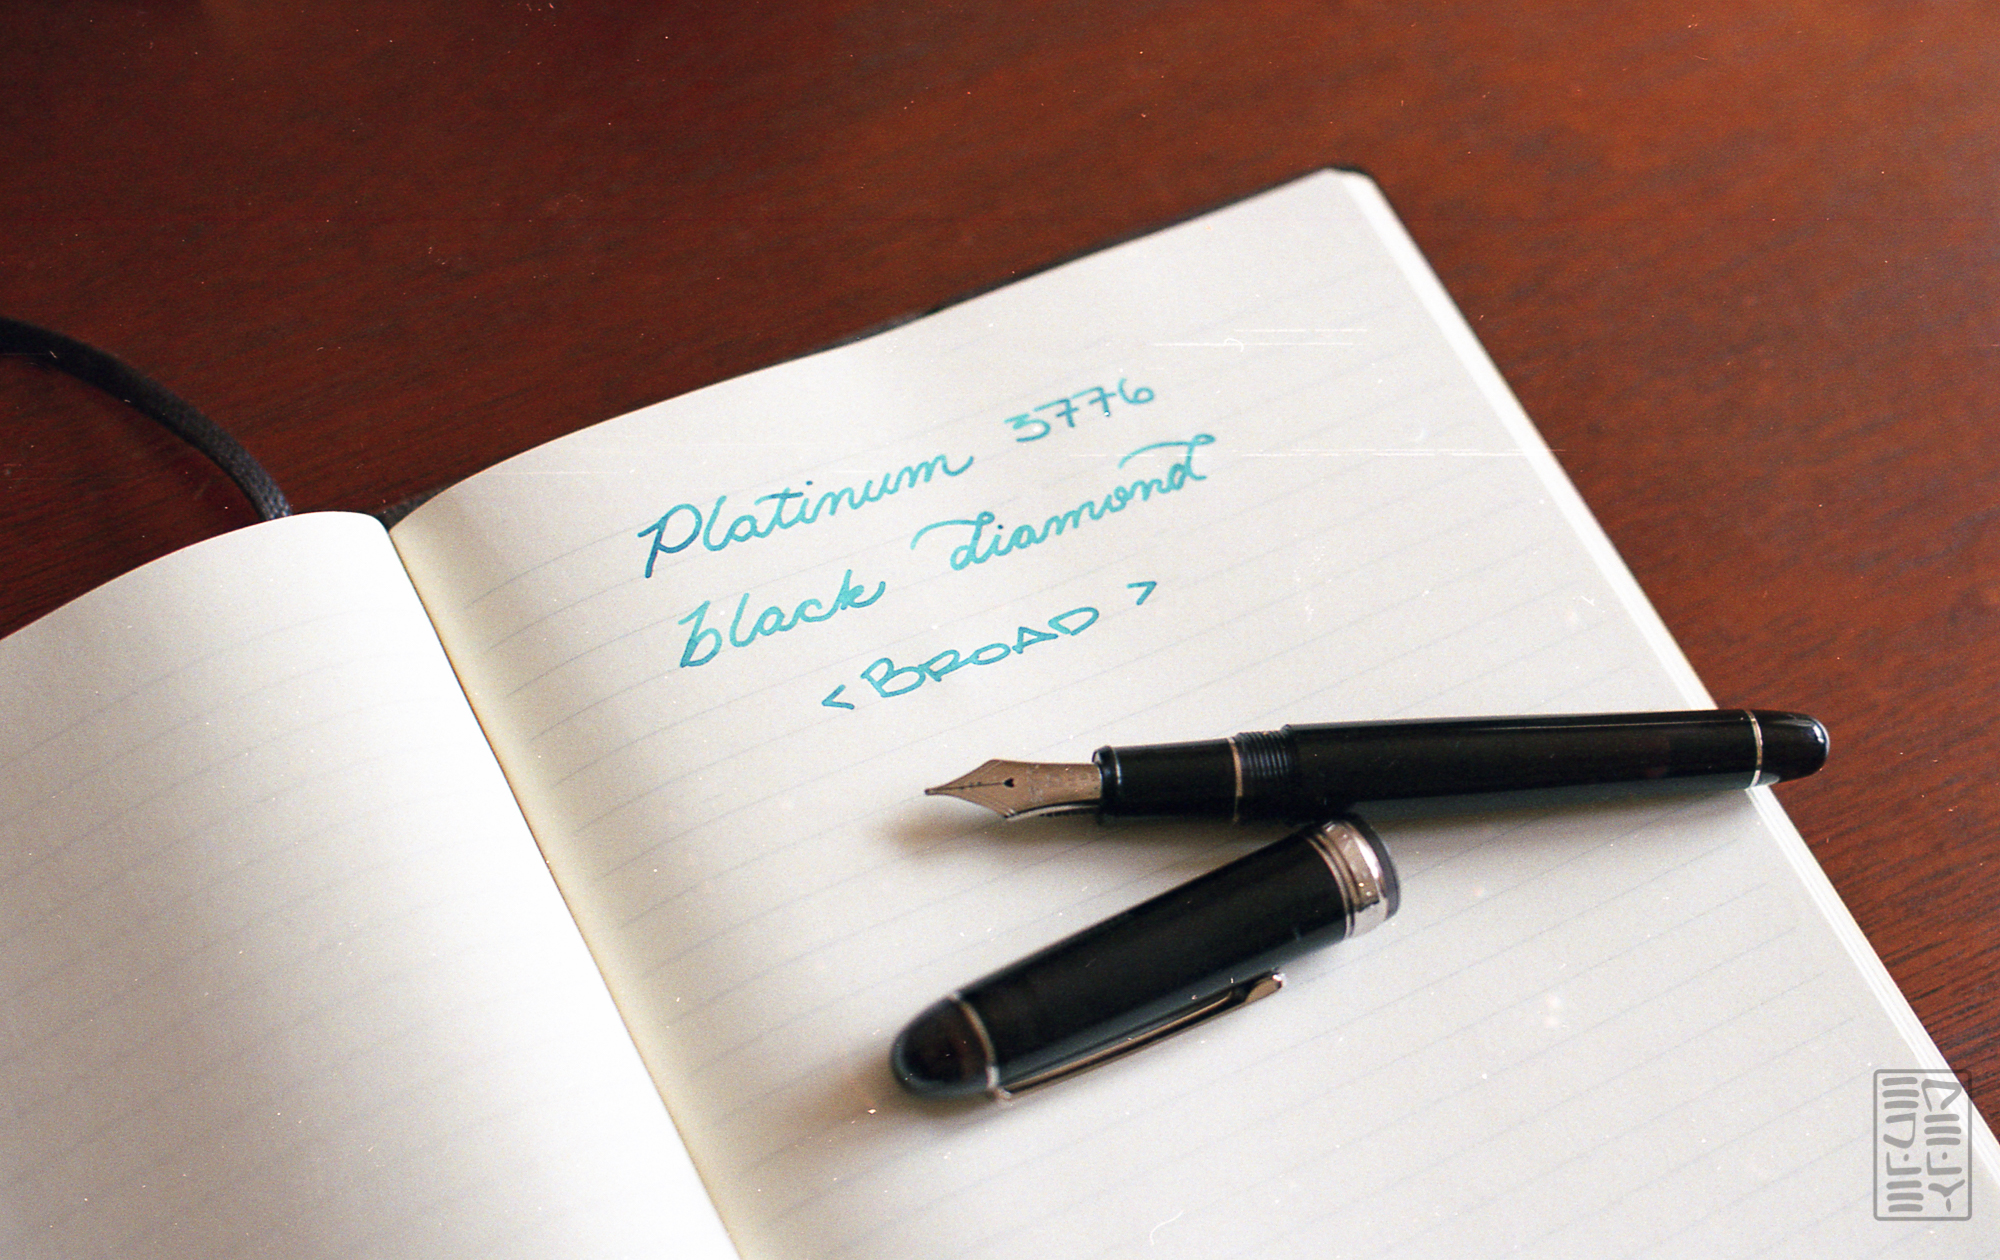 Platinum 3776
black diamond
<BROAD>